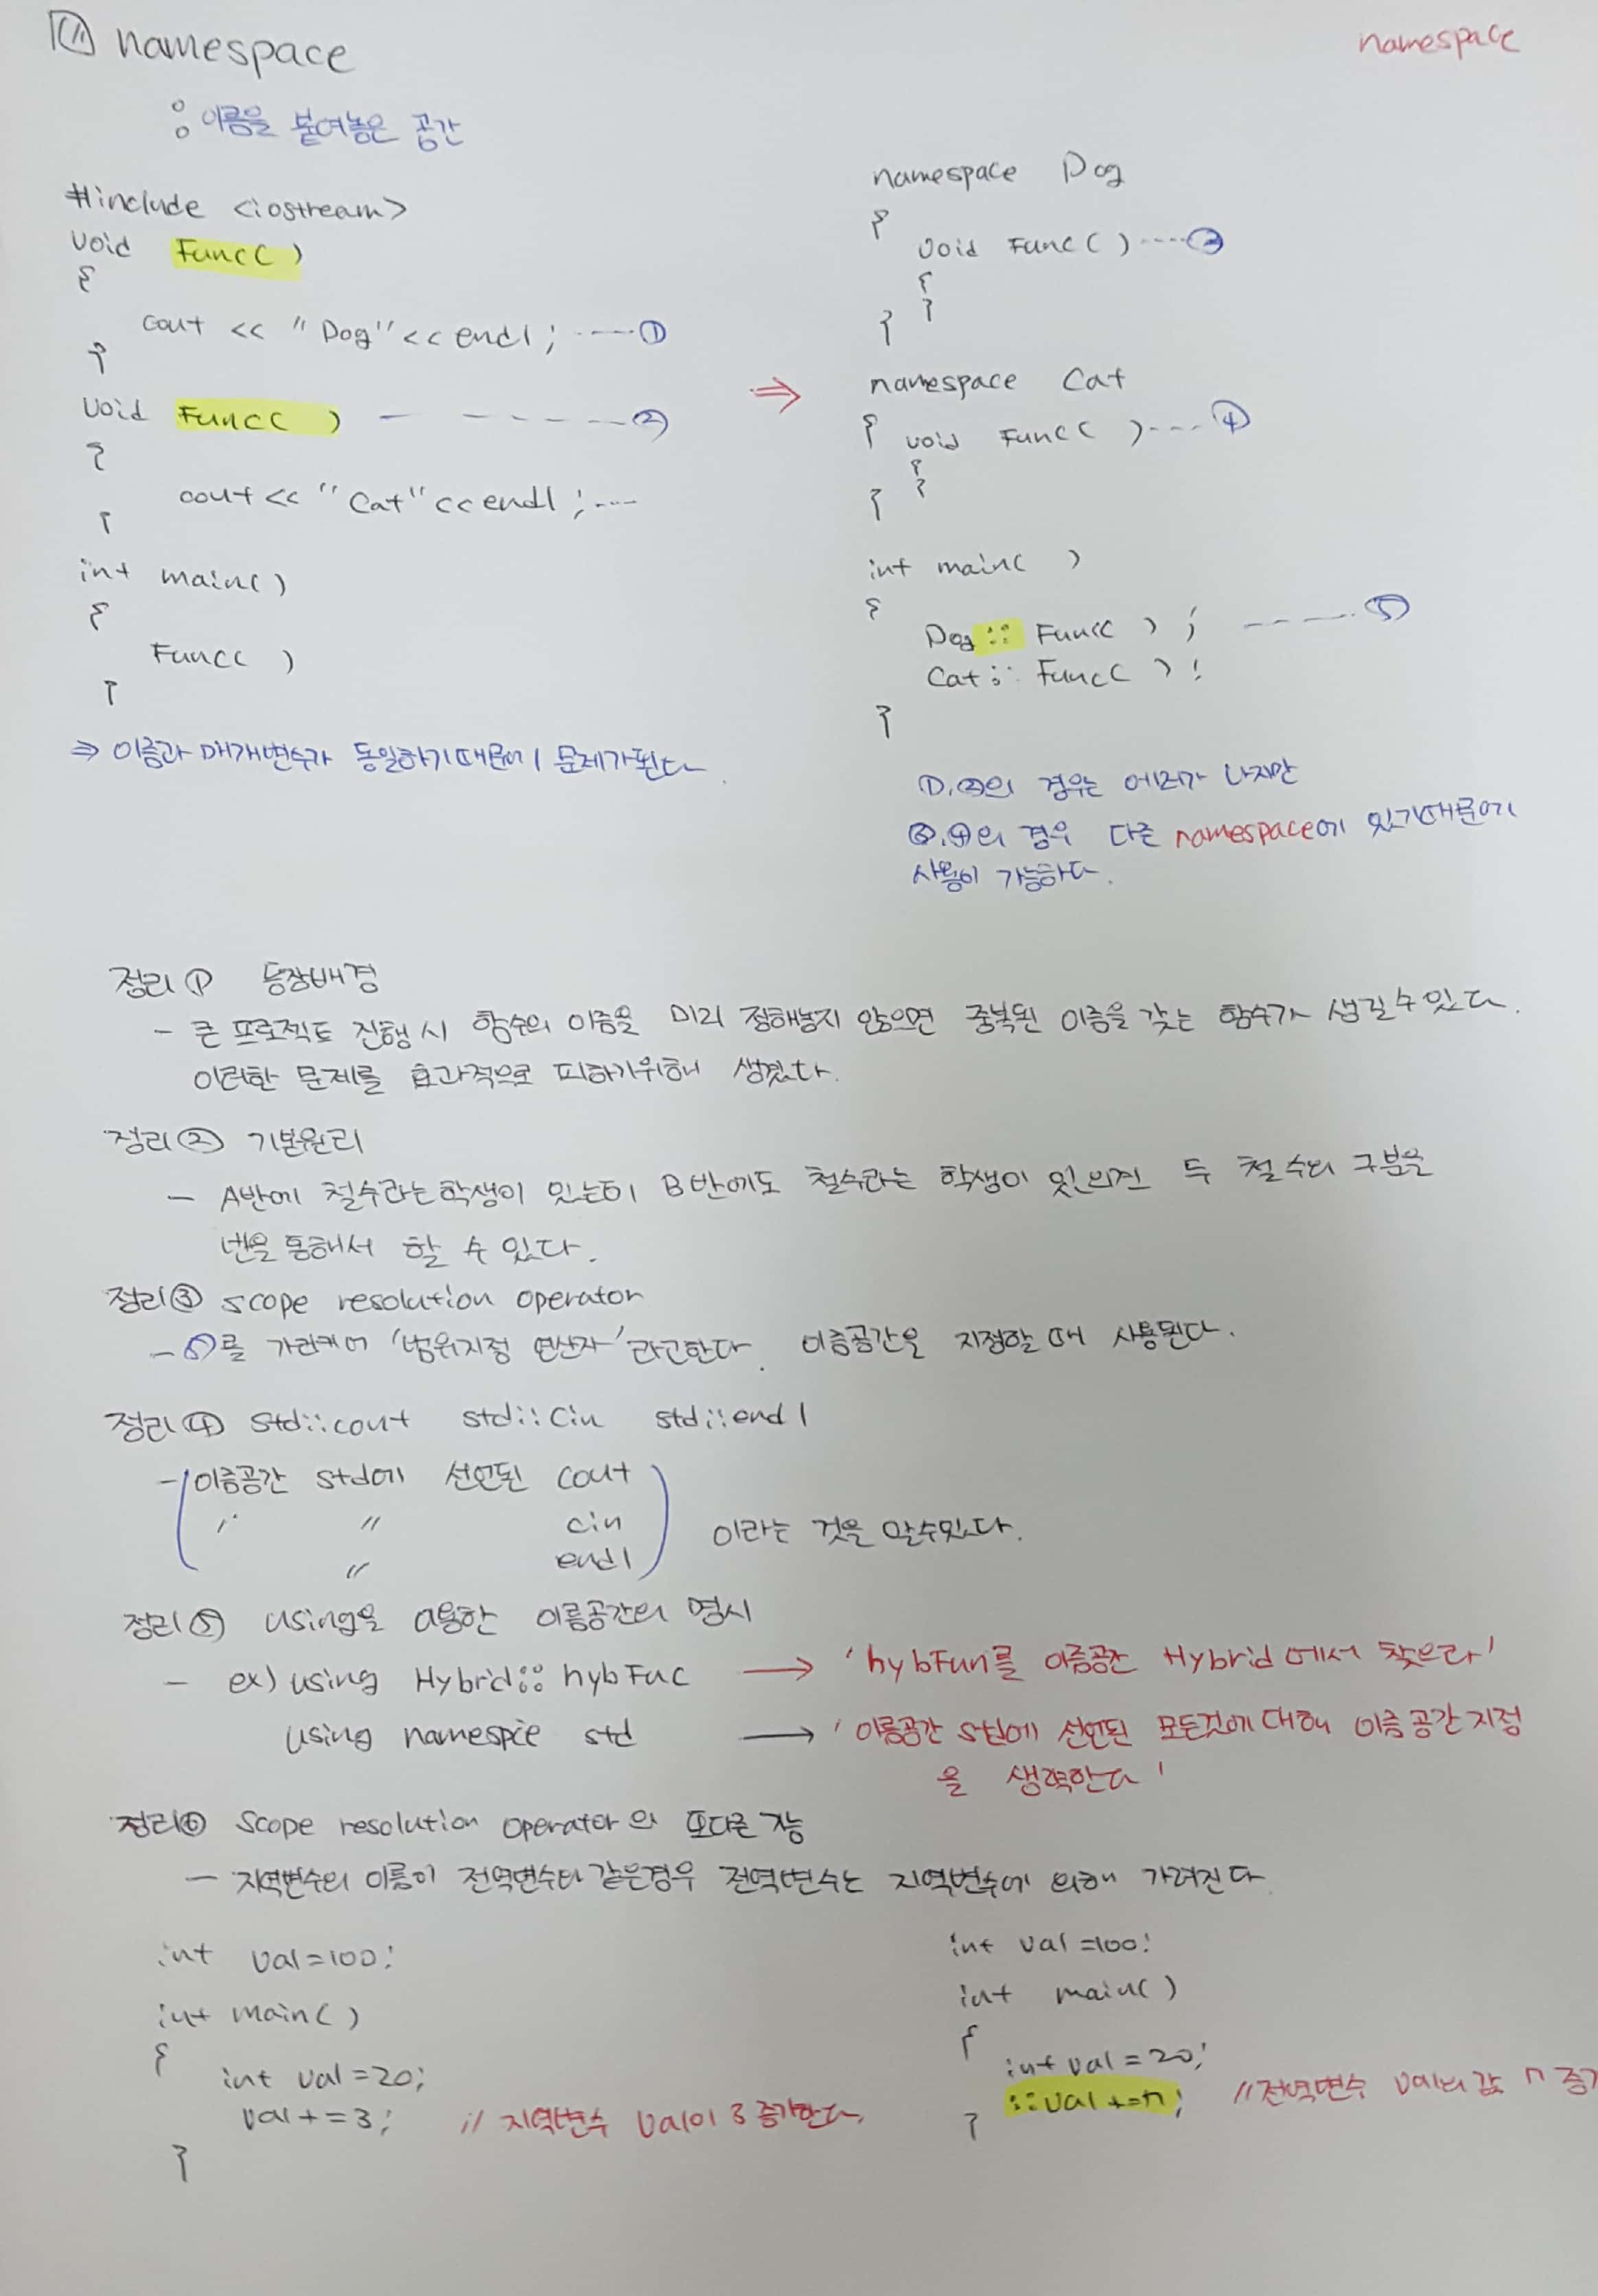 ⑪ namespace
namespace
: 이름을 붙여놓은 공간
#include <iostream>
void Func( )
{
cout << "Dog" << endl; ----- ①
}
void Func( ) ----- ②
{
cout << "Cat" << endl; ---
}
int main()
{
Func( )
}
⇒ 이름과 매개변수가 동일하기때문에 문제가된다.
⇒
namespace Dog
{
void Func( ) ---- ③
{
}
}
namespace Cat
{ void Func( ) ---- ④
{
}
}
int main( )
{
Dog :: Func( ) ; ----- ⑤
Cat :: Func( ) ;
}
①,②의 경우는 에러가 나지만
③,④의 경우 다른 namespace에 있기때문에
사용이 가능하다.
정리① 등장배경
- 큰 프로젝트 진행시 함수의 이름을 미리 정해놓지 않으면 중복된 이름을 갖는 함수가 생길수있다.
이러한 문제를 효과적으로 피하기위해 생겼다.
정리② 기본원리
- A반에 철수라는학생이 있는데 B반에도 철수라는 학생이 있으면 두 철수의 구분을
반을 통해서 할 수 있다.
정리③ scope resolution operator
- ⑤를 가리켜 '범위지정 연산자'라고한다. 이름공간을 지정할때 사용된다.
정리④ std::cout std::cin std::endl
- (이름공간 std에 선언된 cout
〃 〃 cin
〃 endl) 이라는 것을 알수있다.
정리⑤ using을 이용한 이름공간의 명시
- ex) using Hybrid::hybFuc → 'hybFun를 이름공간 Hybrid에서 찾으라'
using namespce std → '이름공간 std에 선언된 모든것에대해 이름공간지정
을 생략한다'
정리⑥ Scope resolution operator의 또다른 기능
- 지역변수의 이름이 전역변수와 같은경우 전역변수는 지역변수에 의해 가려진다.
int val=100;
int main( )
{
int val=20;
val+=3; // 지역변수 val이 3 증가한다.
}
int val=100;
int main( )
{
int val=20;
::val+=n; //전역변수 val의 값 n 증가
}